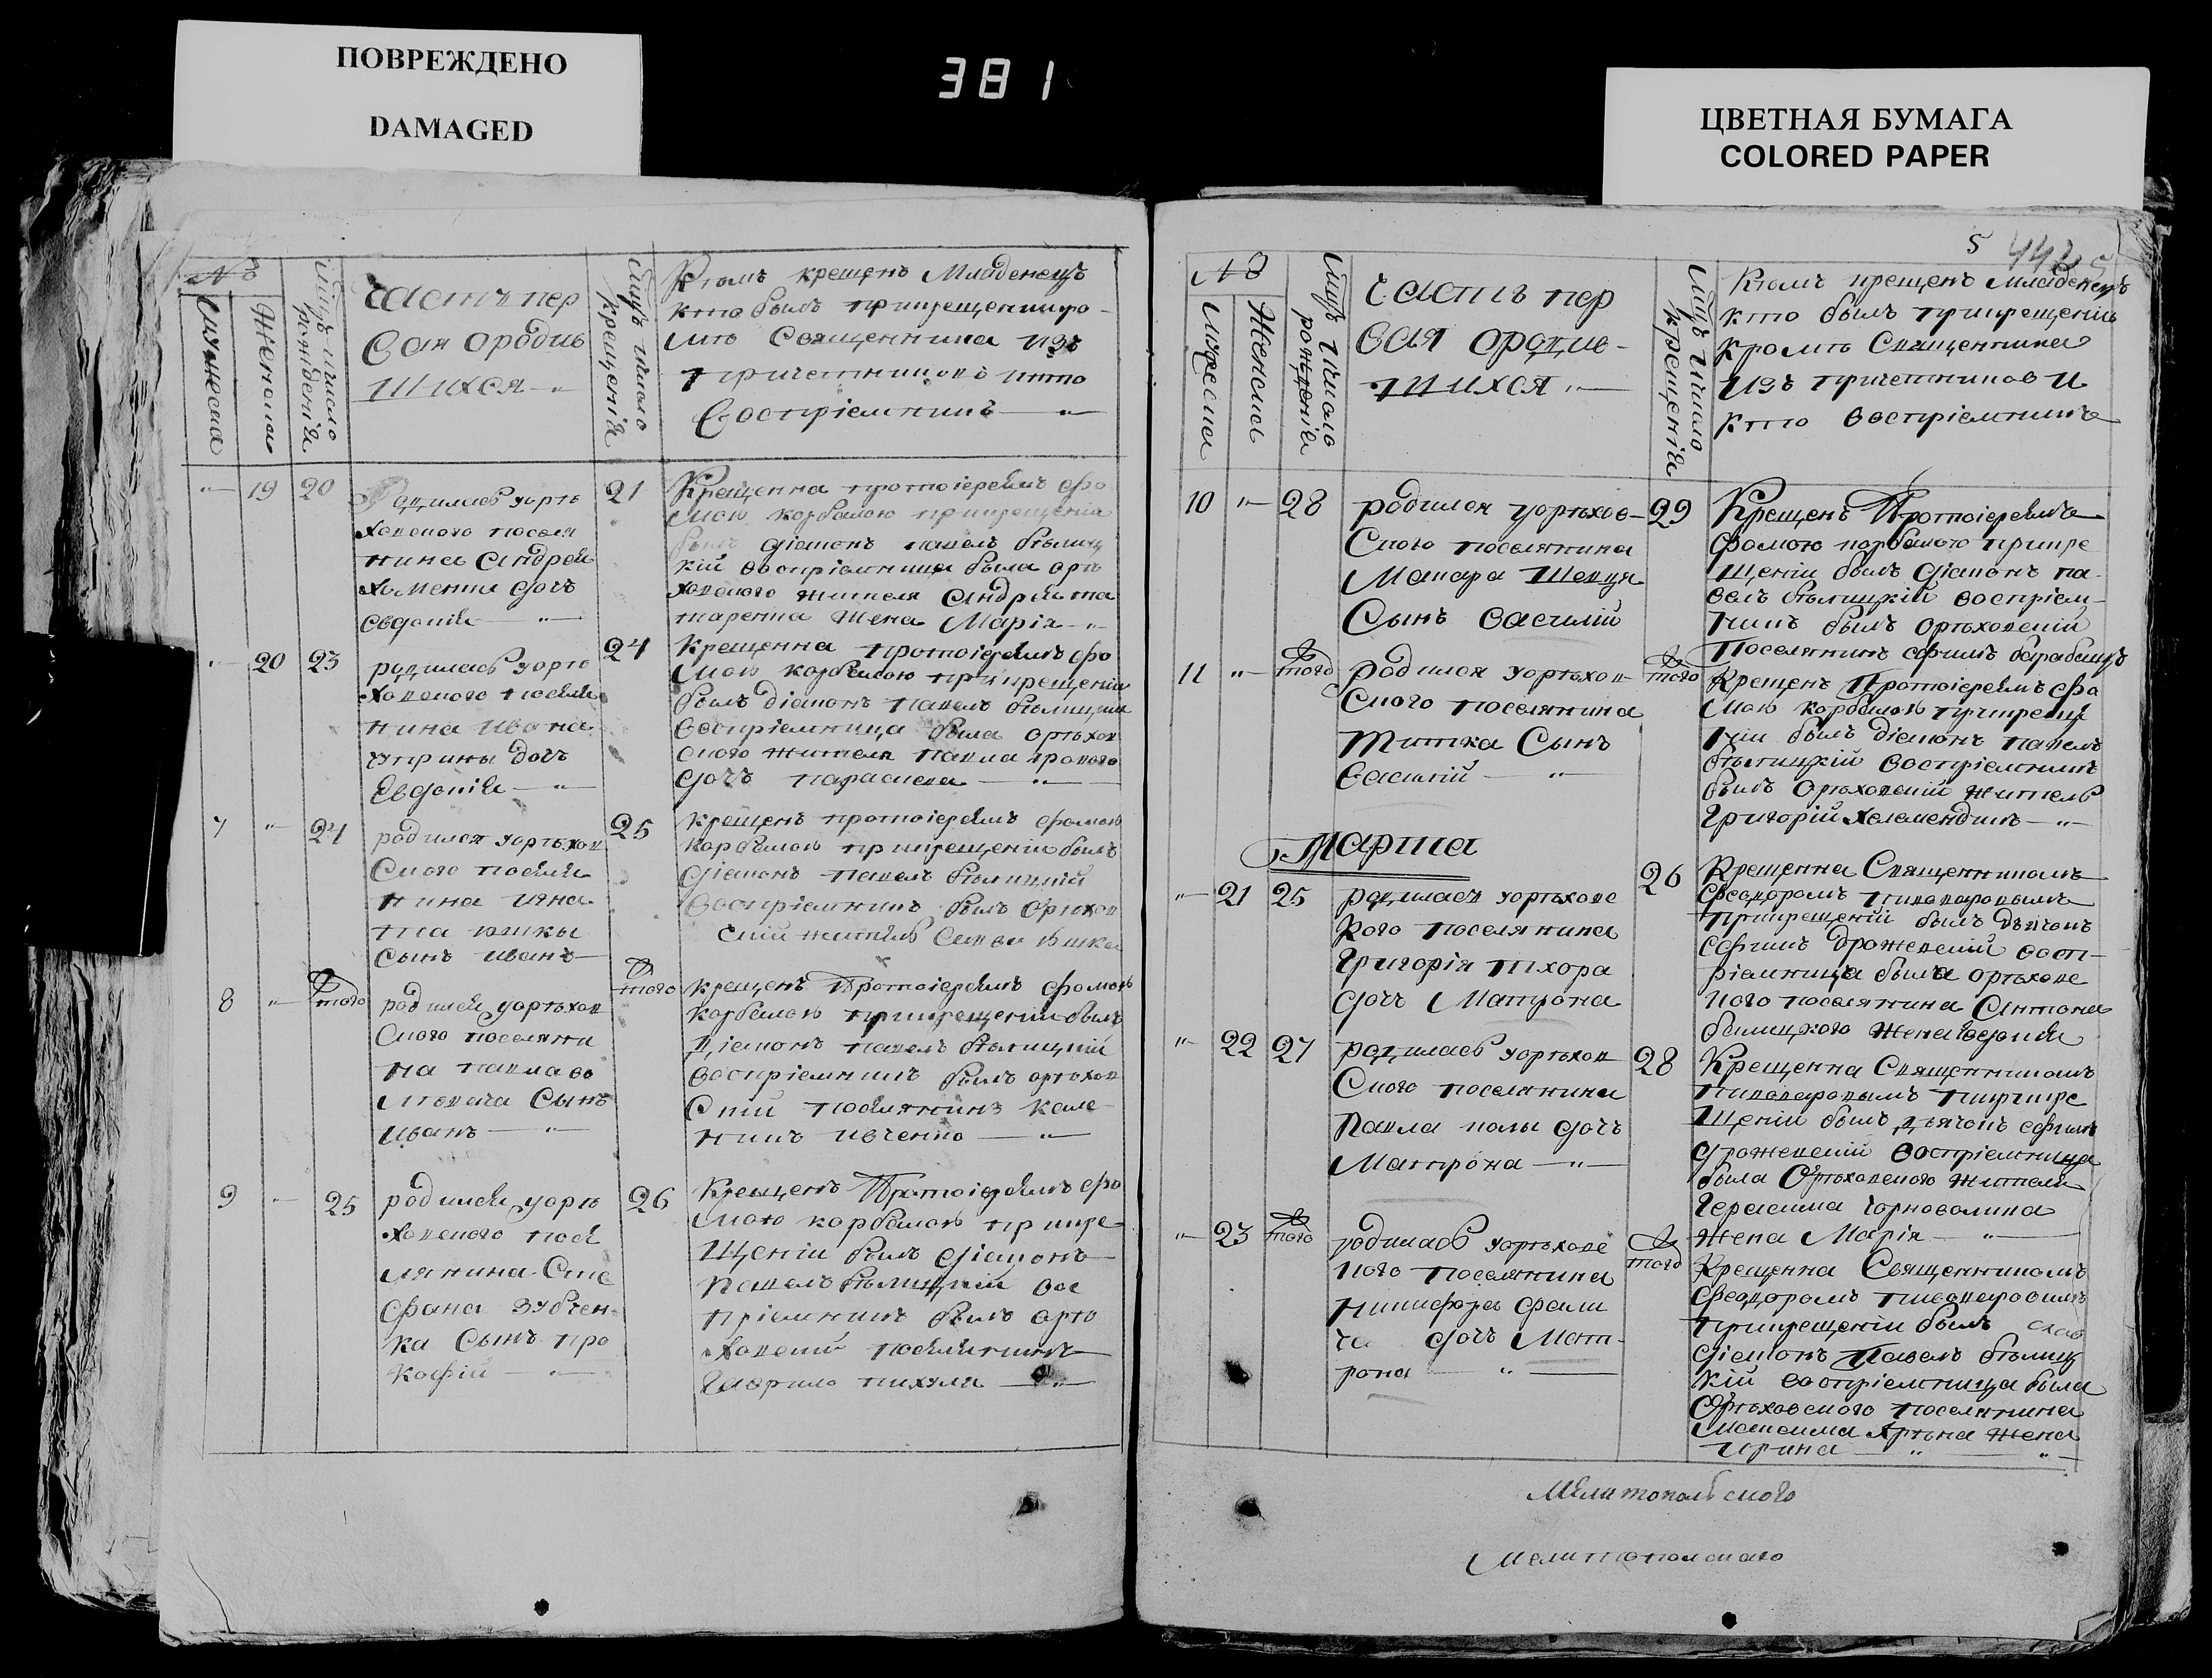 ПОВРЕЖДЕНО
DAMAGED
381
ЦВЕТНАЯ БУМАГА
COLORED PAPER
№
Мужеска
Женска
Мцъ и число рождения
Часть пер
вая о родив
шихся
Мцъ и число крещенія
Кѣмъ крещенъ Младенецъ
кто былъ при крещеніи кро-
мѣ Священника изъ
причетниковъ и кто
восприемникъ
19 20
Родилась у орѣ
ховского поселя
нина Андрея
Хоменки дочь
Евдокія
21
Крещенна протоіереемъ фо
мою корбѣлою при крещеніи
былъ діаконъ павелъ бѣлиц
кій восприемница была орѣ
ховского жителя Андрея та
таренка жена Марія
20 23
родилась у орѣ
ховского поселя
нина ивана
куприны дочь
Евдокія
24
Крещенна протоіереемъ фо
мою корбѣлою при крещеніи
былъ діаконъ павелъ бѣлицкій
восприемница была орѣхов
ского жителя павла ярового
дочь параскева
7 24
родился у орѣхов
ского поселя
нина
сынъ иванъ
25
крещенъ протоіереемъ фомою
корбѣлою при крещеніи былъ
діаконъ павелъ бѣлицкій
восприемникъ былъ орѣхов
скій житель
8 того
родился у орѣхов
ского поселяни
на павла
сынъ
иванъ
того
крещенъ Протоіереемъ фомою
корбѣлою при крещеніи былъ
діаконъ павелъ бѣлицкій
восприемникъ былъ орѣхов
скій поселянинъ кале-
никъ ивченко
9 25
родился у орѣ
ховского посе
лянина Сте
фана зубчен-
ка сынъ про
кофій
26
Крещенъ Протоіереемъ фо
мою корбѣлою при кре-
щеніи былъ діаконъ
павелъ бѣлицкій вос
приемникъ былъ орѣ
ховскій поселянинъ
гаврило пихуля
5
442
5
№
Мужеска
Женска
Мцъ и число рожденія
Часть пер
вая о родив-
шихся
Мцъ и число крещенія
Кѣмъ крещенъ Младенецъ
кто былъ при крещеніи
кромѣ Священника
изъ причетников и
кто восприемникъ
10 28
родился у орѣхов-
ского поселянина
Макара Шевця
Сынъ василій
29
Крещенъ Протоіереемъ
фомою корбѣлою при кре
щеніи былъ діаконъ па-
велъ бѣлицкій восприем-
никъ былъ орѣховскій
Поселянинъ ефимъ барабашъ
11 того
родился у орѣхов-
ского поселянина
титка сынъ
василій
того
Крещенъ Протоіереемъ фо
мою корбѣлою при креще
ніи былъ діаконъ павелъ
бѣлицкій восприемникъ
былъ Орѣховскій житель
Григорій
Марта
21 25
родилась у орѣховс
кого поселянина
Григорія тхора
дочь Матрона
26
Крещенна Священникомъ
феодоромъ
при крещеніи былъ дьячокъ
ефимъ дрожевскій восп-
ріемница была орѣховс
кого поселянина Антона
бѣлицкого жена евдокія
22 27
родилась у орѣхов
ского поселянина
Павла колы дочь
Матрона
28
Крещенна Священникомъ
при кре
щеніи былъ дьячокъ ефимъ
дрожевскій восприемница
была Орѣховского жителя
герасима чорноволика
жена Марія
23 того
родилась у орѣховс
кого поселянина
никифора
дочь Мат-
рона
того
Крещенна Священникомъ
феодоромъ
при крещеніи былъ
діаконъ Павелъ бѣлиц
кій восприемница была
Орѣховского поселянина
Максима жена
ирина
Мелитопольского
Мелитополского